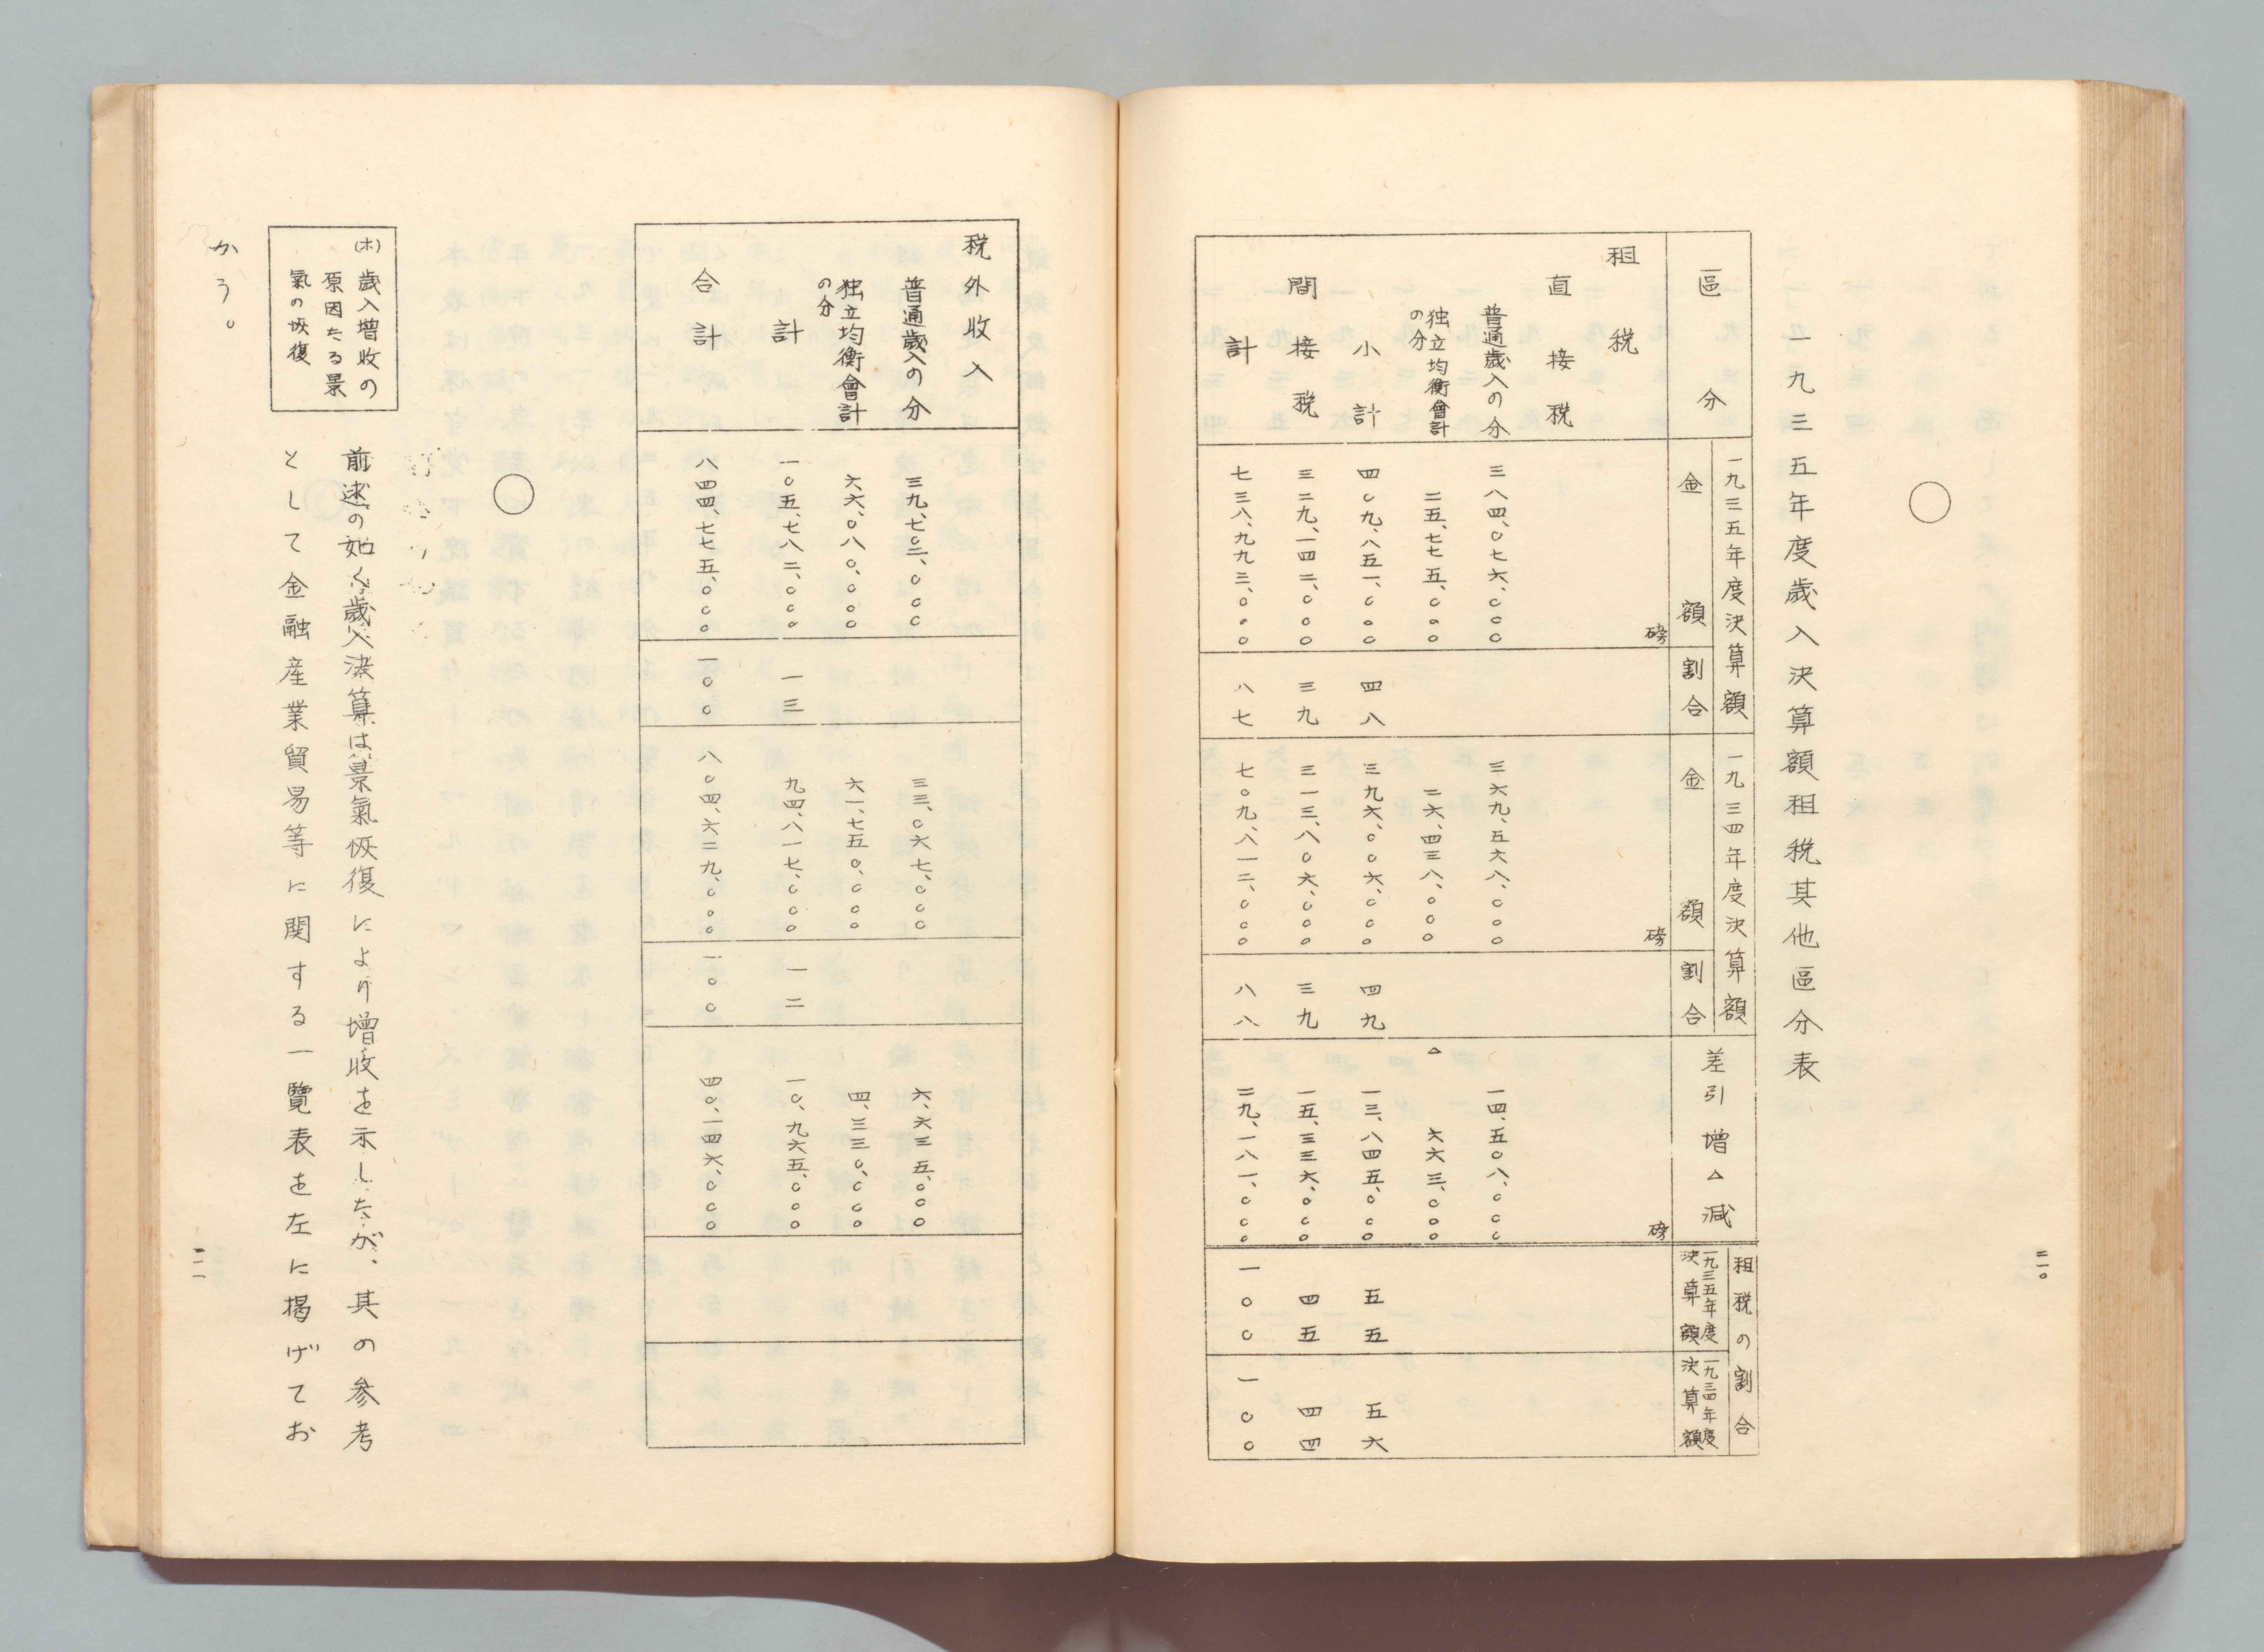 二一〇
〇
一九三五年度歳入決算額租税其他區分表
區分
一九三五年度決算額
金額
割合
一九三四年度決算額
金額
割合
差引增△減
租税の割合
一九三五年度決算額
一九三四年度決算額
租税
磅
磅
磅
直接税
普通歳入の分 三八四、〇七六、〇〇〇 三六九、五六八、〇〇〇 一四、五〇八、〇〇〇
独立均衡會計の分 二五、七七五、〇〇〇 二六、四三八、〇〇〇 △ 六六三、〇〇〇
小計 四〇九、八五一、〇〇〇 四八 三九六、〇〇六、〇〇〇 四九 一三、八四五、〇〇〇 五五 五六
間接税 三二九、一四二、〇〇〇 三九 三一三、八〇六、〇〇〇 三九 一五、三三六、〇〇〇 四五 四四
計 七三八、九九三、〇〇〇 八七 七〇九、八一二、〇〇〇 八八 二九、一八一、〇〇〇 一〇〇 一〇〇
税外收入
普通歳入の分 三九、七〇二、〇〇〇 三三、〇六七、〇〇〇 六、六三五、〇〇〇
独立均衡會計の分 六六、〇八〇、〇〇〇 六一、七五〇、〇〇〇 四、三三〇、〇〇〇
計 一〇五、七八二、〇〇〇 一三 九四、八一七、〇〇〇 一二 一〇、九六五、〇〇〇
合計 八四四、七七五、〇〇〇 一〇〇 八〇四、六二九、〇〇〇 一〇〇 四〇、一四六、〇〇〇
〇
(ホ) 歳入増收の
原因たる景
氣の恢復
前述の如く歳入決算は景氣恢復により增收を示したが、其の参考
として金融産業貿易等に関する一覽表を左に揭げてお
かう。
二一一